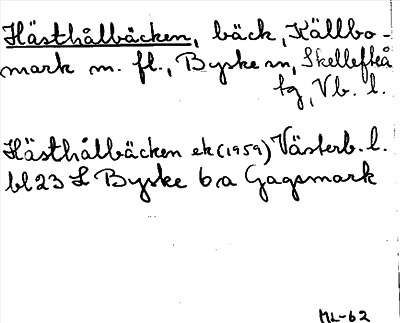 Hästhålbäcken, bäck, Källbo-
mark m. fl., Byske sn, Skellefteå
tg, Vb. l.
Hästhålbäcken ek (1959) Västerb. l.
bl 23 L Byske 6a Gagsmark
ML-62